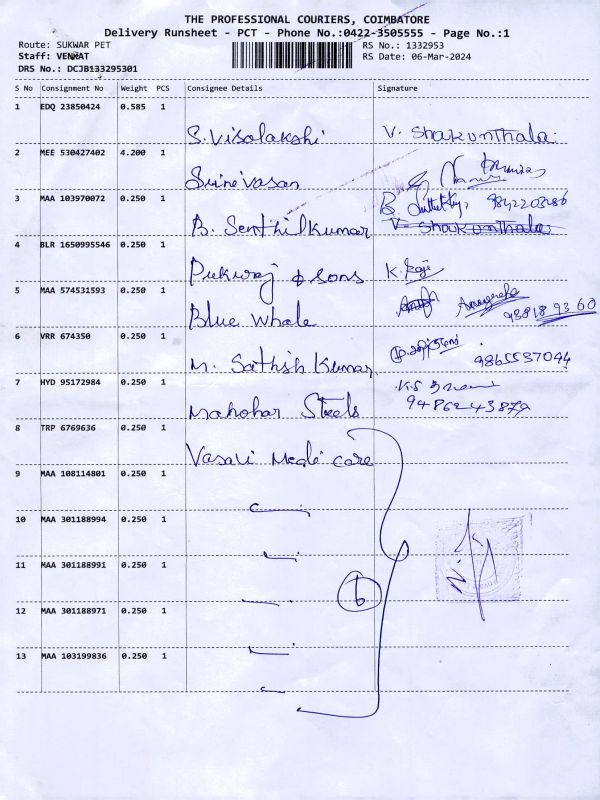 THE PROFESSIONAL COURIERS, COIMBATORE
Delivery Runsheet - PCT - Phone No.:0422-3505555 - Page No.:1
Route: SUKWAR PET
RS No.: 1332953
Staff: VENKAT
RS Date: 06-Mar-2024
DRS No.: DCJB133295301
S No Consignment No Weight PCS Consignee Details Signature
1 EDQ 23850424 0.585 1
S. Visalakshi V. Shakunthala
2 MEE 530427402 4.200 1
Srinevasan
3 MAA 103970072 0.250 1
B. 9842203286
B. Senthilkumar V. Shakunthala
4 BLR 1650995546 0.250 1
Pukraj & sons K. Raji
5 MAA 574531593 0.250 1
Blue Whale 93818 93 60
6 VRR 674350 0.250 1
M. Sathish Kumar 9865557044
7 HYD 95172984 0.250 1
K.S
9486243879
Manohar Steels
8 TRP 6769636 0.250 1
Vasavi Medi care
9 MAA 108114801 0.250 1
10 MAA 301188994 0.250 1
11 MAA 301188991 0.250 1
6
12 MAA 301188971 0.250 1
13 MAA 103199836 0.250 1